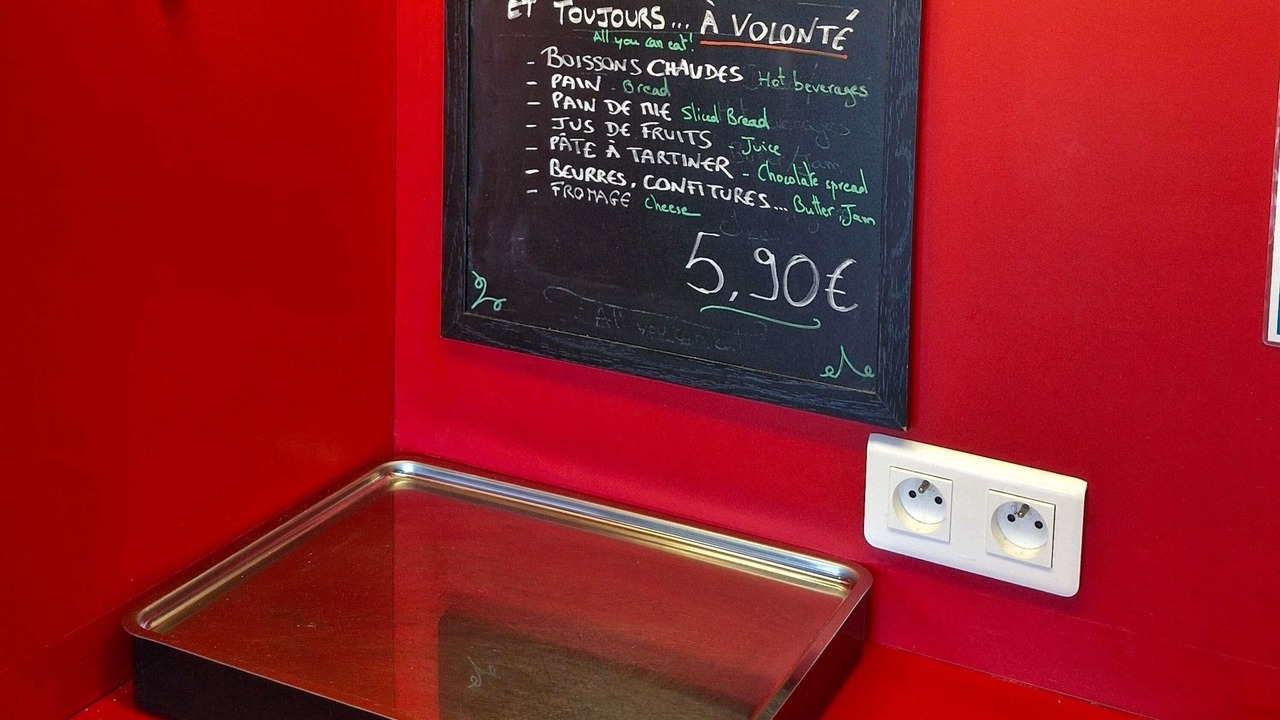 ET TOUJOURS... À VOLONTÉ
All you can eat!
- BOISSONS CHAUDES Hot beverages
- PAIN - Bread
- PAIN DE MIE Sliced Bread
- JUS DE FRUITS - Juice
- PÂTE À TARTINER - Chocolate spread
- BEURRES, CONFITURES... Butter, Jam
- FROMAGE Cheese
5,90€